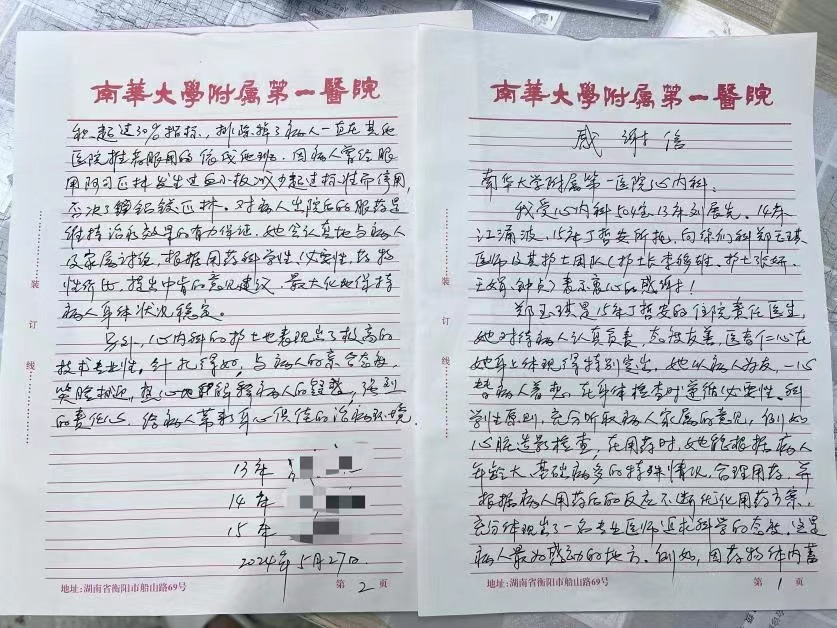 南華大學附属第一醫院
感谢信
南华大学附属第一医院心内科:
我受心内科504室13床刘展先、14床
江涌波、15床丁哲安所托,向你们科郑玉琪
医师及其护士团队(护士长李 护士张妍、
王婷、钟点)表示衷心的感谢!
郑玉琪是15床丁哲安的住院责任医生,
她对待病人认真负责,态度友善,医者仁心在
她身上体现得特别突出。她以病人为友,一心
替病人着想。在身体检查时遵循必要性、科
学性原则,充分听取病人家属的意见,例如
心脏造影检查,在用药时,她能根据病人
年龄大、基础病多的特殊情况,合理用药,并
根据病人用药后的反应不断优化用药方案,
充分体现出了一名专业医师追求科学的态度。这是
病人最为感动的地方。例如,因药物体内蓄
地址:湖南省衡阳市船山路69号
第1页
南華大學附属第一醫院
积超过30%指标,排除掉了病人一直在其他
医院推荐服用的依伐他班。因病人曾经服
用阿司匹林发生过血小板减少超过指标而停用,
否决了 铝镁匹林。对病人出院后的服药是
维持治疗效果的有力保证,她会认真地与病人
及家属讨论,根据用药科学性、必要性、药物
性价比,提出中肯的意见建议,最大化地保持
病人身体状况稳定。
另外,心内科的护士也表现出了极高的
技术专业性。针扎得好,与病人的亲合态度,
笑脸相迎,耐心地解释病人的疑惑,强烈
的责任心,给病人带来身心俱佳的治病环境。
13床
14床
15床
2024年5月27日
地址:湖南省衡阳市船山路69号
第2页
装
订
线
装
订
线